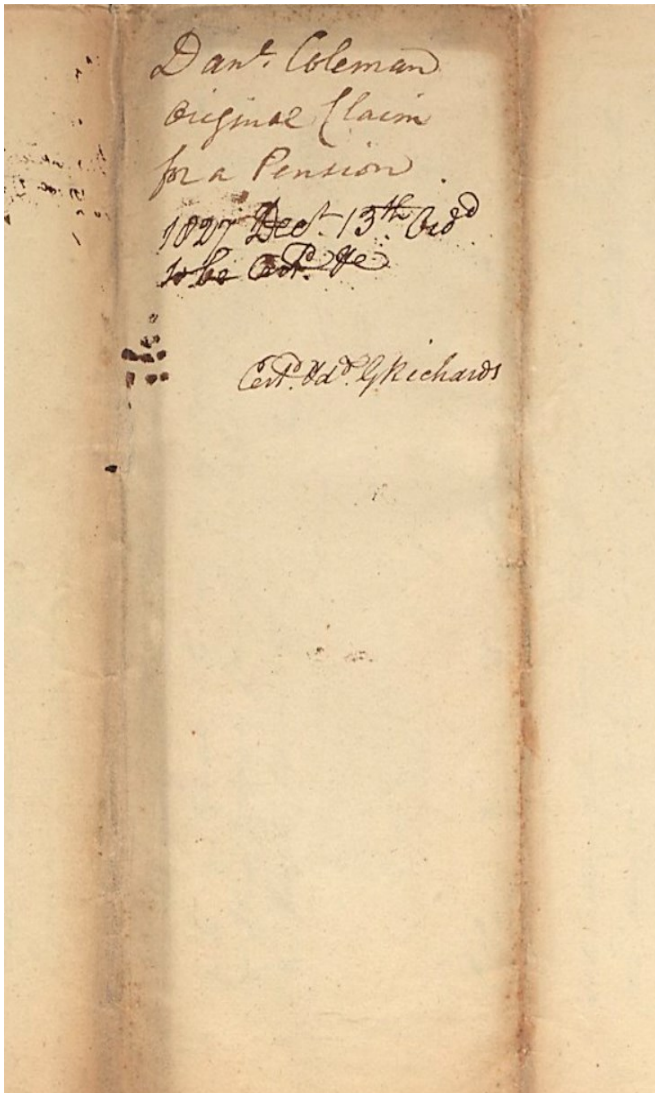 Danl. Coleman
Original Claim
for a Pension
1827 Dect. 13th Ordd
to be Certd. &c
Certd. &d. G Richards